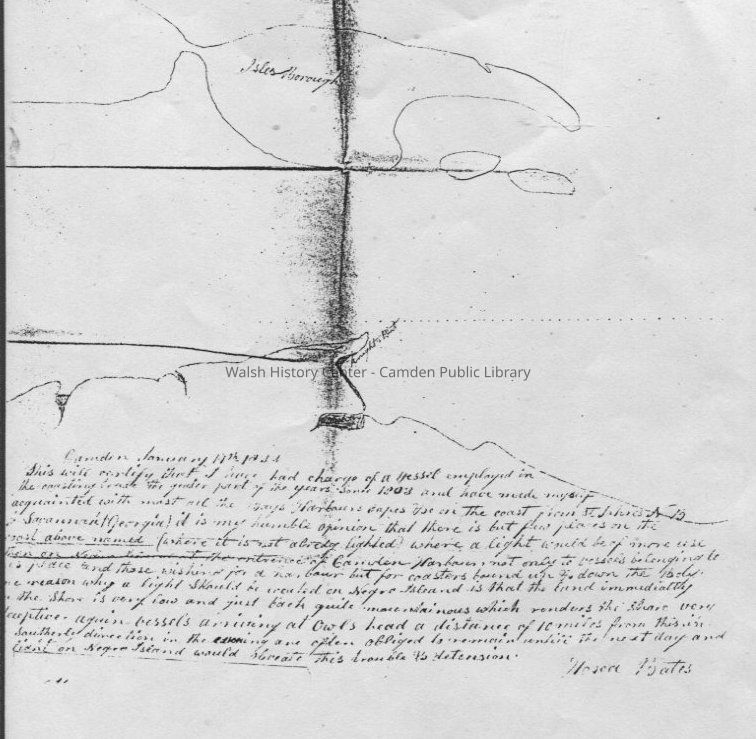 Isles Borough
Knight's Point
Walsh History Center - Camden Public Library
Camden January 17th
This will certify that I have had charge of a vessel employed in
the coasting trade the greater part of the years since 1803 and have made myself
acquainted with most all the Bays Harbours capes &c on the coast from St Johns N B
Savannah (Georgia) it is my humble opinion that there is but few places on the
coast above named (where it is not already lighted) where a light would be of more use
than on Negro Island at the entrence of Camden Harbour not only to vessels belonging to
is place and those wishing for a harbour but for coasters bound up & down the Bay.
e reason why a light should be erected on Negro Island is that the land immediatly
the Shore is very low and just back quite mountainous which renders the Shore very
deceptive again vessels arriving at Owls head a distance of 10 miles from this in
Southerly direction in the evening are often obliged to remain untill the next day and
light on Negro Island would obviate this trouble & detension.
Hosea Bates